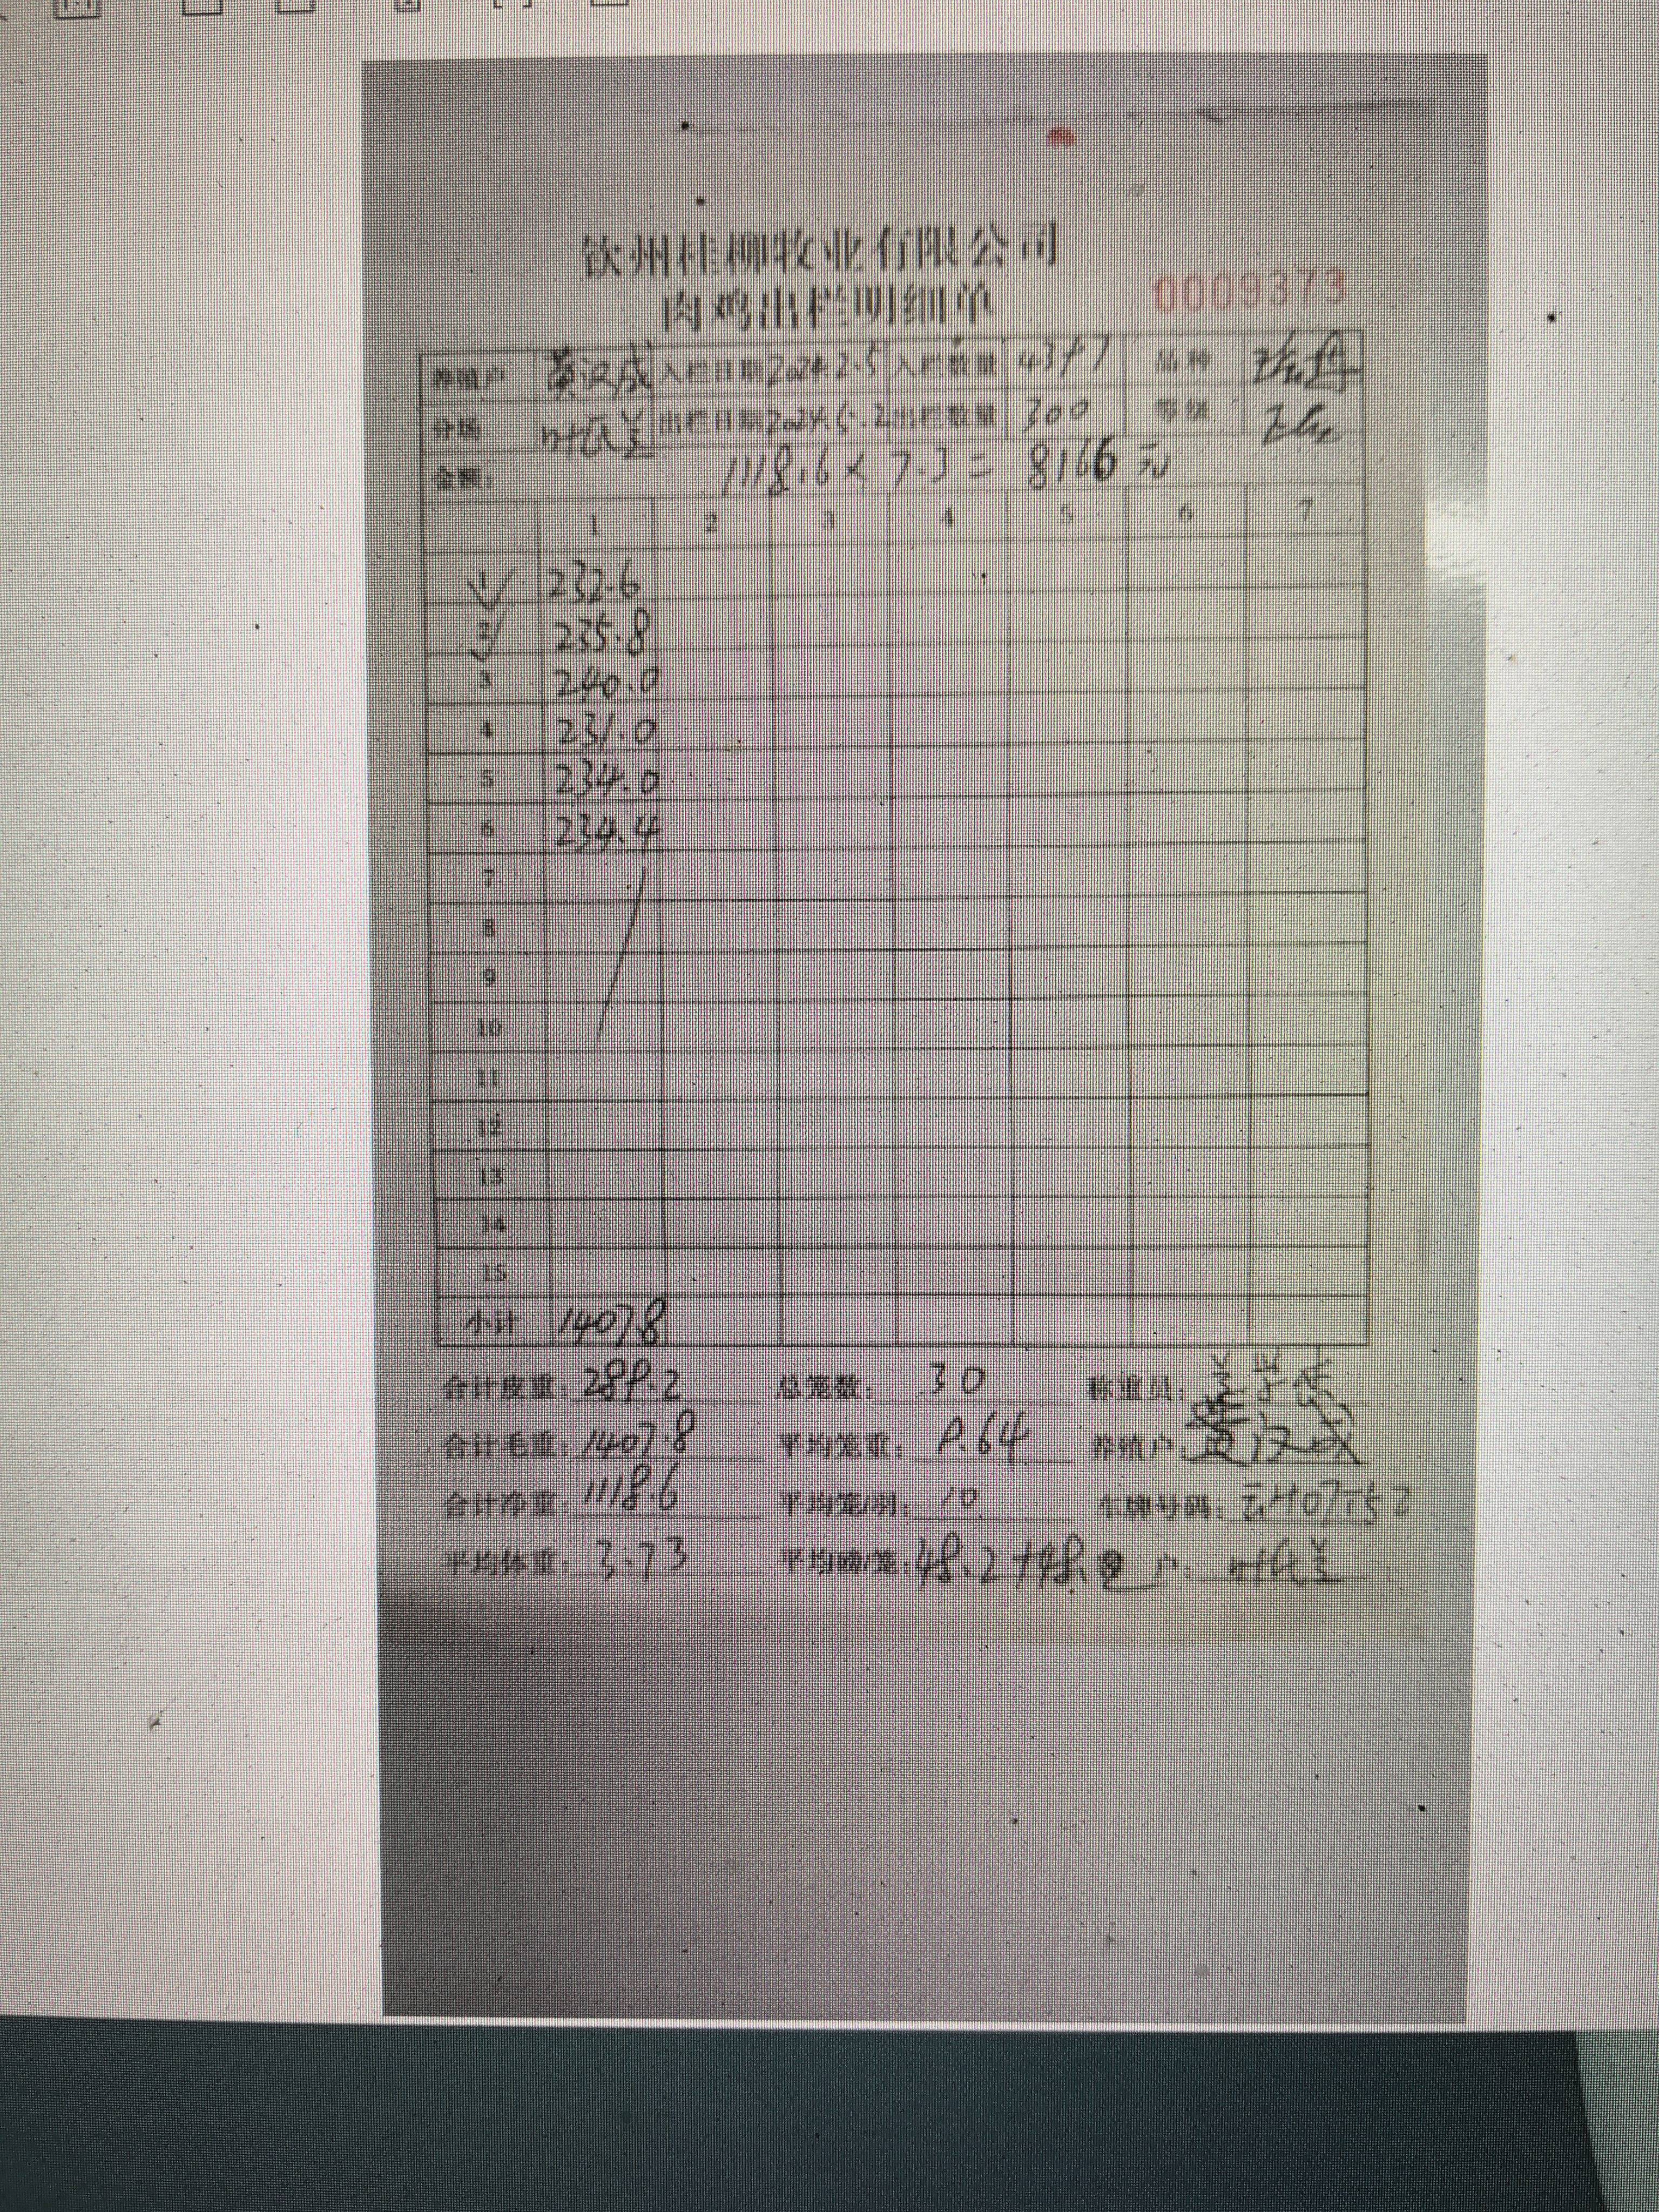 钦州桂柳牧业有限公司
肉鸡出栏明细单 0009373
养殖户 入栏日期 2024.2.5 入栏数量 品种
分场 出栏日期 出栏数量 300 等级
金额: 1118.6 × 7.3 = 8166 元
1 2 3 4 5 6 7
1 232.6
2 235.8
3 240.0
4 231.0
5 234.0
6 234.4
7
8
9
10
11
12
13
14
15
小计 1407.8
合计皮重: 289.2 总笼数: 30 称重员:
合计毛重: 1407.8 平均笼重: 9.64 养殖户:
合计净重: 1118.6 平均笼/羽: 10 车牌号码:
平均体重: 3.73 平均磅/笼: 48.2 户: